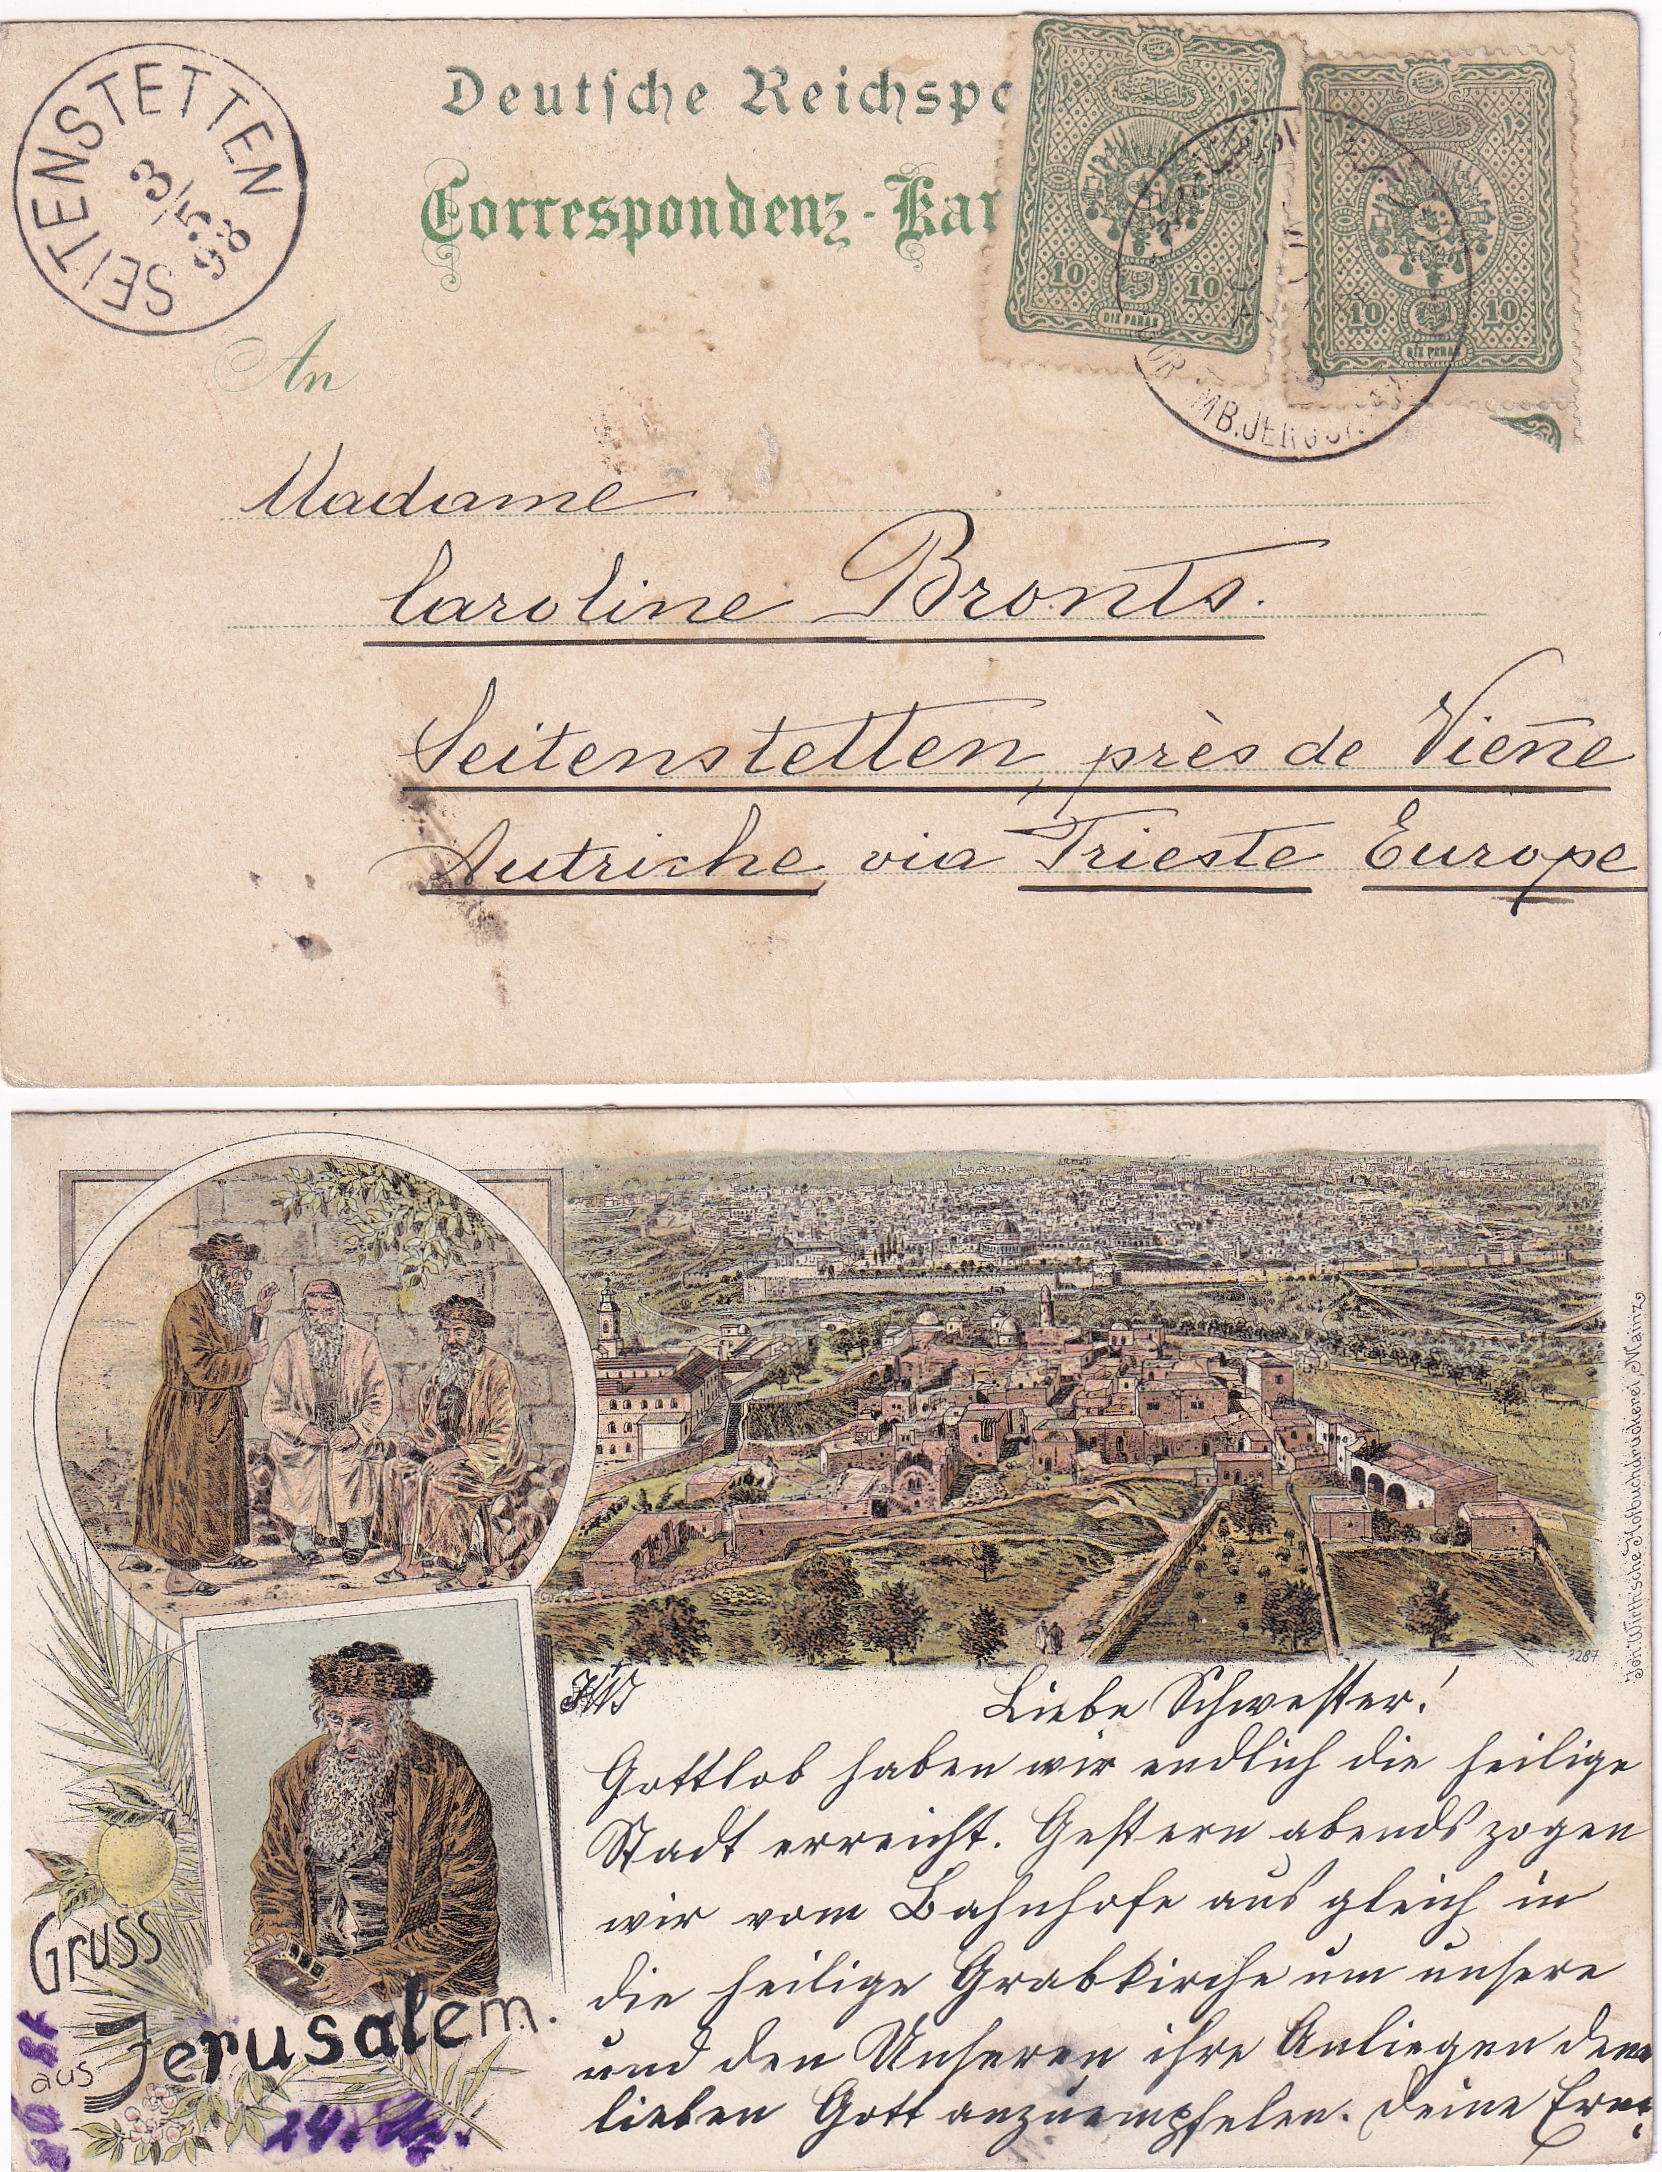 SEITENSTETTEN
3/5
98
Deutsche Reichspo
Correspondenz-Kar
10 10
DIX PARAS
10 10
DIX PARAS
An
Madame
Caroline Bronts.
Seitenstetten, près de Vien̄e
Autriche via Trieste Europe
Joh. Wirth'sche Hofbuchdruckerei, Mainz
1287
Liebe Schwester!
Gottlob haben wir endlich die heilige
Stadt erreicht. Gestern abends zogen
wir vom Bahnhofe aus gleich in
die heilige Grabkirche um unsere
und den Unseren ihre Anliegen dem
lieben Gott anzuempfelen. Deine
Gruss
aus Jerusalem.